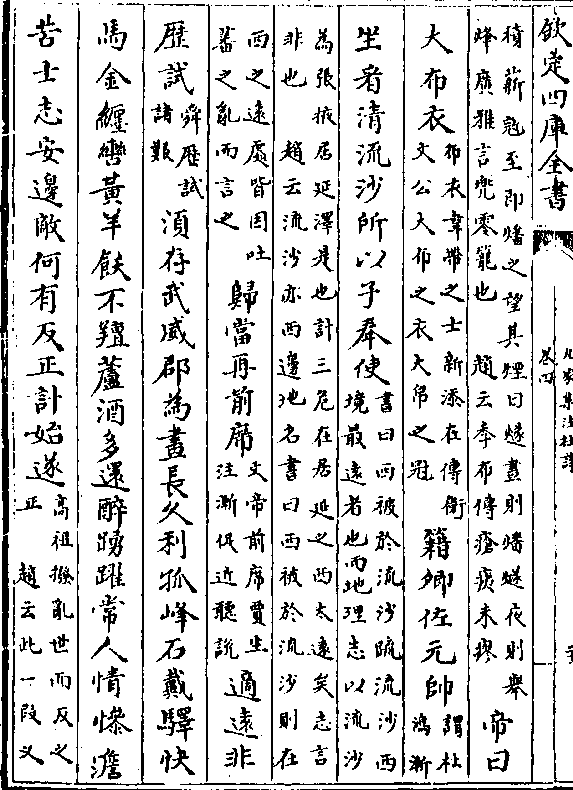 欽定四庫全書
卷四
積薪寇至即燔之望其煙曰燧晝則燔燧夜則舉
烽廣雅言兜零籠也　趙云奉布傳瘡痍未瘳
帝曰
大布衣
布衣韋帶之士新添在傳衛
文公大布之衣大帛之冠
籍卿佐元帥
謂杜
鴻漸
坐看清流沙所以子奉使
書曰西被於流沙䟽流沙西
境最遠者也而地理志以流沙
為張掖居延澤是也計三危在居延之西太遠矣志言
非也　趙云流沙亦西邊地名書曰西被於流沙則在
西之遠處皆因吐
蕃之亂而言之
歸當再前席
文帝前席賈生
注漸促近聽說
適遠非
歷試
舜歷試
諸艱
須存武威郡為畫長久利孤峰石戴驛快
馬金纏轡黃羊飫不羶蘆酒多還醉踴躍常人情慘澹
苦士志安邊敵何有反正計始遂
高祖撥亂世而反之
正　趙云此一段義